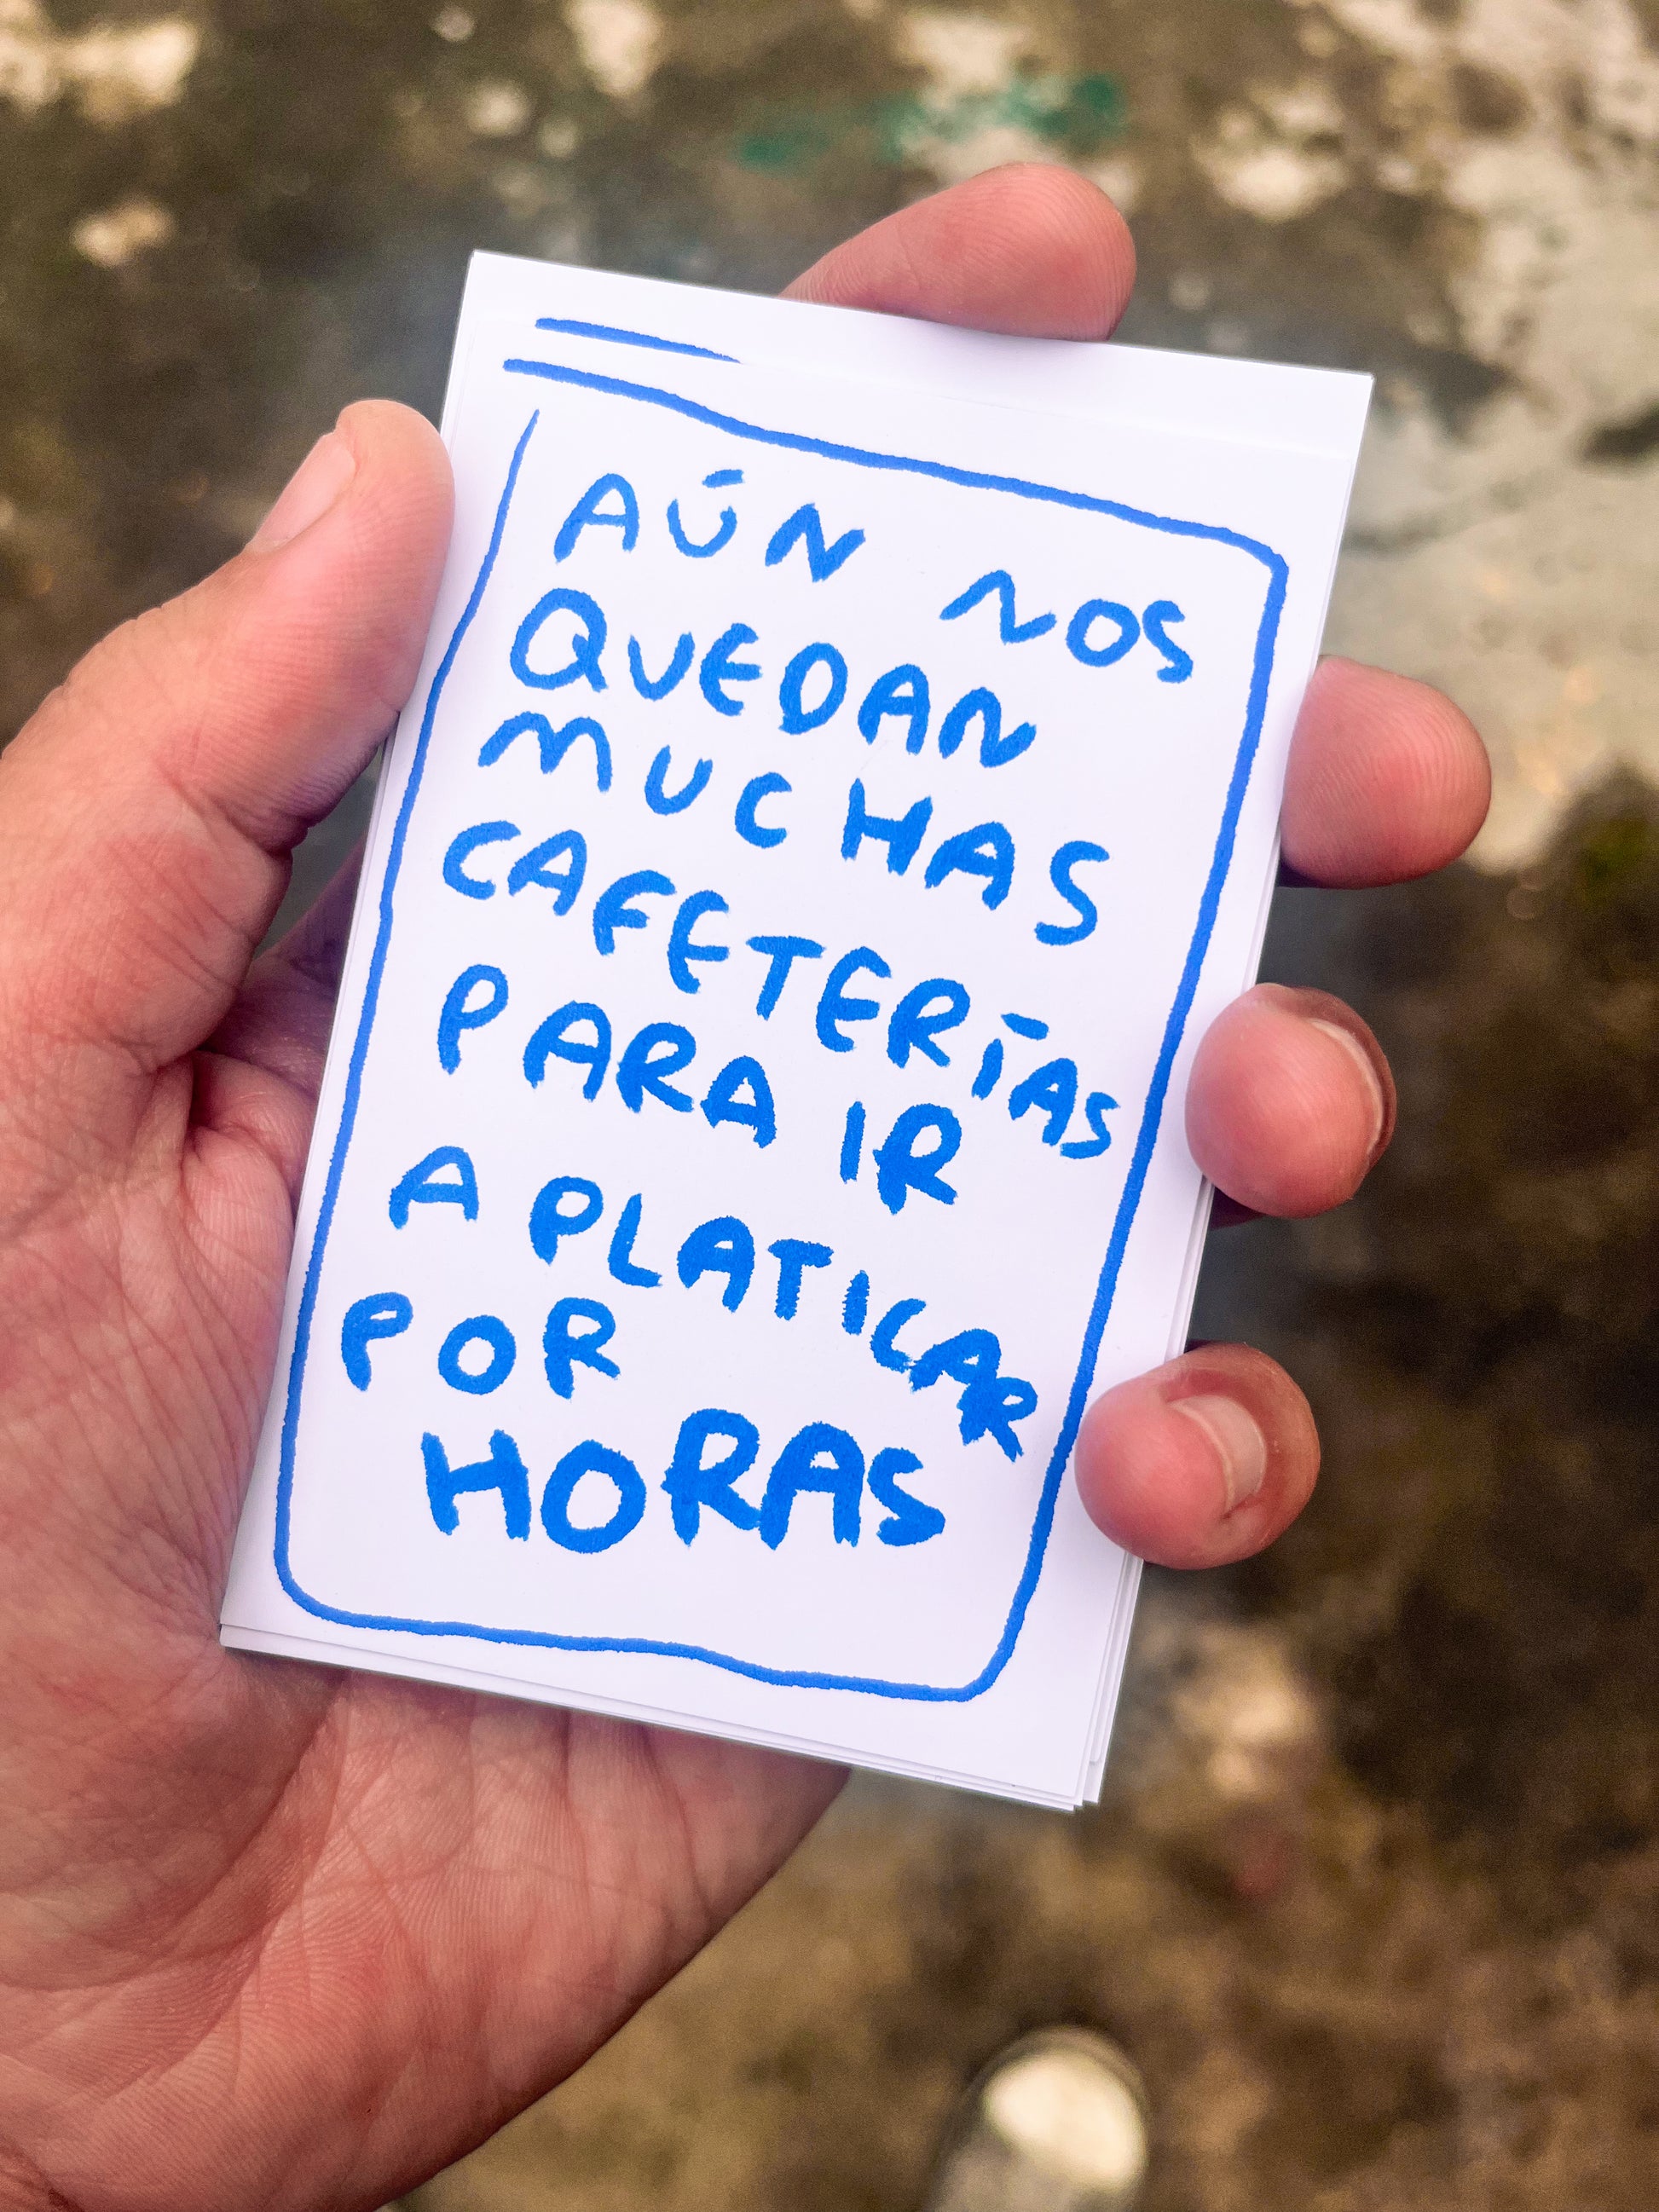 AÚN NOS
QUEDAN
MUCHAS
CAFETERÍAS
PARA IR
A PLATICAR
POR
HORAS